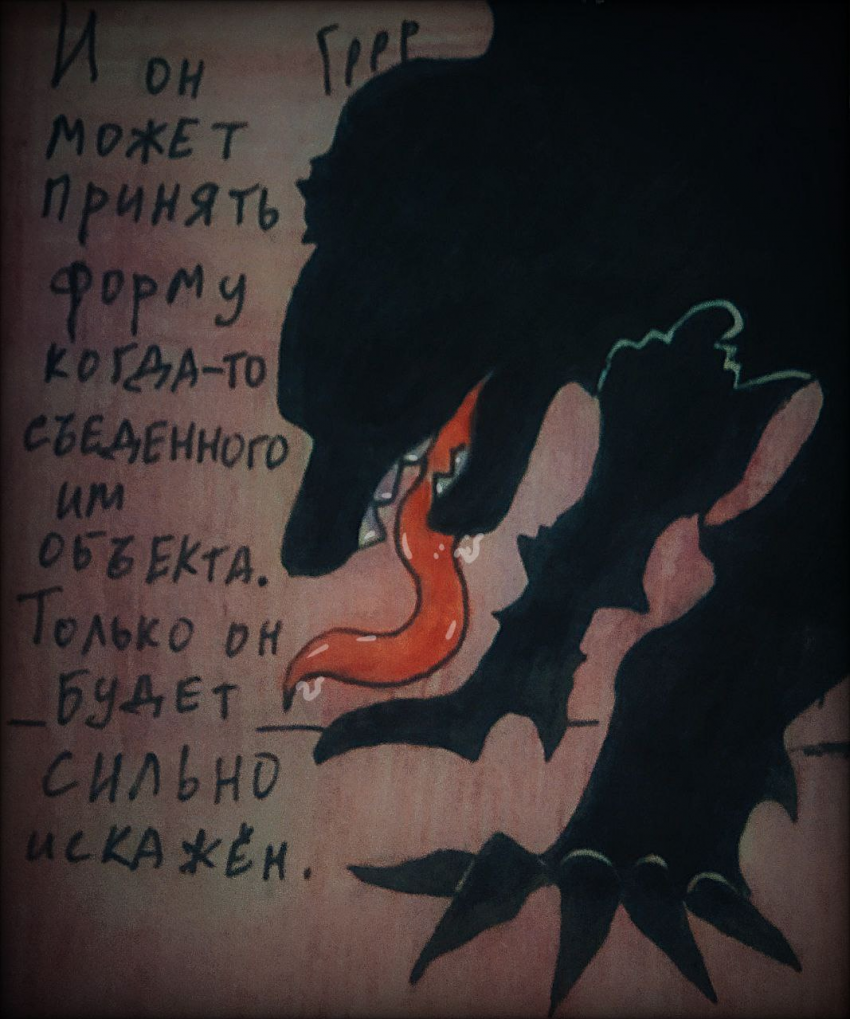 И он
может
принять
форму
когда-то
съеденного
им
объекта.
Только он
будет
сильно
искажён.
Гррр